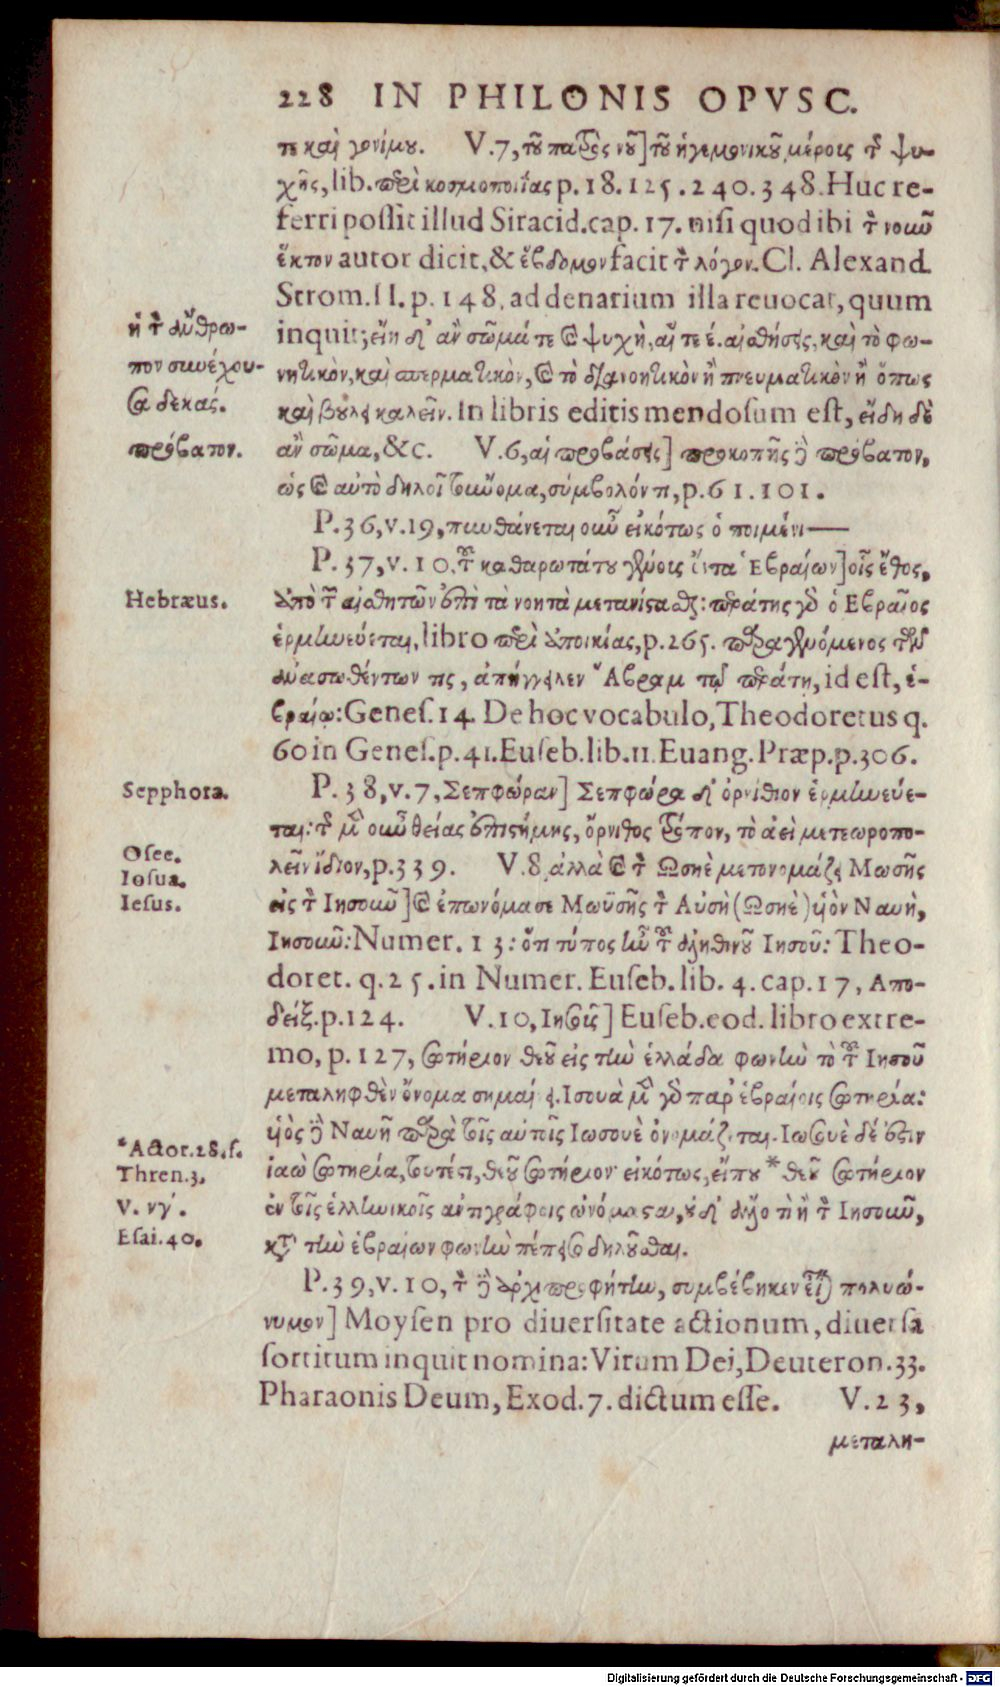 228 IN PHILONIS OPVSC.
τε καὶ γονίμου. V.7, τοῦ πατρὸς νοῦ] τοῦ ἡγεμονικοῦ μέρους τῆς ψυ-
χῆς, lib. περὶ κοσμοποιΐας p.18.125.240.348. Huc re-
ferri possit illud Siracid. cap. 17. nisi quod ibi τὸν νοῦν
ἕκτον autor dicit, & ἕβδομον facit τὸν λόγον. Cl. Alexand.
Strom. II. p. 148, ad denarium illa reuocat, quum
inquit; εἴη δ' ἂν σῶμά τε καὶ ψυχὴ, αἵ τε έ. αἰσθήσεις, καὶ τὸ φω-
νητικὸν, καὶ σπερματικὸν, καὶ τὸ διανοητικὸν ἢ πνευματικὸν ἢ ὅπως
καὶ βούλει καλεῖν. In libris editis mendosum est, εἴδη δὲ
ἂν σῶμα, &c. V.6, αἱ προβάσεις] προκοπῆς δὲ πρόβατον,
ὡς καὶ αὐτὸ δηλοῖ τοὔνομα, σύμβολόν τι, p.61.101.
P.36, v.19, πυνθάνεται οὖν εἰκότως ὁ ποιμένι—
P.37, v.10, τοῦ καθαρωτάτου γένους Ἑβραίων] οἷς ἔθος,
ἀπὸ τῶν αἰσθητῶν ἐπὶ τὰ νοητὰ μετανίστασθαι: περάτης γὰρ ὁ Εβραῖος
ἑρμηνεύεται, libro περὶ ἀποικίας, p.265. παραγενόμενος τῶν
ἀνασωθέντων τις, ἀπήγγειλεν Ἄβραμ τῷ περάτῃ, id est, ἑ-
βραίῳ: Genes. 14. De hoc vocabulo, Theodoretus q.
60 in Genes. p.41. Euseb. lib. 11. Euang. Præp. p.306.
P.38, v.7, Σεπφώραν] Σεπφώρα δ' ὀρνίθιον ἑρμηνεύε-
ται: τῆς μὲν οὖν θείας ἐπιστήμης, ὄρνιθος τρόπον, τὸ ἀεὶ μετεωροπο-
λεῖν ἴδιον, p.339. V.8 ἀλλὰ καὶ τὸν Ωσηὲ μετονομάζει Μωσῆς
εἰς τὸν Ιησοῦν] καὶ ἐπωνόμασε Μωϋσῆς τὸν Αὐσὴ (Ωσηὲ) υἱὸν Ναυὴ,
Ιησοῦν: Numer. 13: ὅτι τύπος ἦν τοῦ ἀληθινοῦ Ιησοῦ: Theo-
doret. q.25. in Numer. Euseb. lib. 4. cap.17, Απο-
δείξ. p.124. V.10, Ιησοῦς] Euseb. eod. libro extre-
mo, p. 127, σωτήριον θεοῦ εἰς τὴν ἑλλάδα φωνὴν τὸ τοῦ Ιησοῦ
μεταληφθὲν ὄνομα σημαίνει. Ισουὰ μὲν γὰρ παρ' ἑβραίοις σωτηρία:
υἱὸς δὲ Ναυῆ παρὰ τοῖς αὐτοῖς Ιωσουὲ ὀνομάζεται. Ιωσουὲ δέ ἐστιν
ἰαὼ σωτηρία, τουτέστι, θεοῦ σωτήριον εἰκότως, εἴπου * θεοῦ σωτήριον
ἐν τοῖς ἑλληνικοῖς ἀντιγράφοις ὠνόμασται, οὐδ' ἄλλο τι ἢ τὸν Ιησοῦν,
κατὰ τὴν ἑβραίων φωνὴν πέπεισο δηλοῦσθαι.
P.39, v.10, τὸν δὲ ἀρχιπροφήτην, συμβέβηκεν εἶναι πολυώ-
νυμον] Moysen pro diuersitate actionum, diuersa
sortitum inquit nomina: Virum Dei, Deuteron. 33.
Pharaonis Deum, Exod. 7. dictum esse. V.23,
μεταλη-
ἡ τὸν ἄνθρω-
πον συνέχου-
σα δεκας.
πρόβατον.
Hebræus.
Sepphora.
Osee.
Iosua.
Iesus.
*Actor. 28. f.
Thren. 3.
V. νγ΄.
Esai. 40.
Digitalisierung gefördert durch die Deutsche Forschungsgemeinschaft - DFG